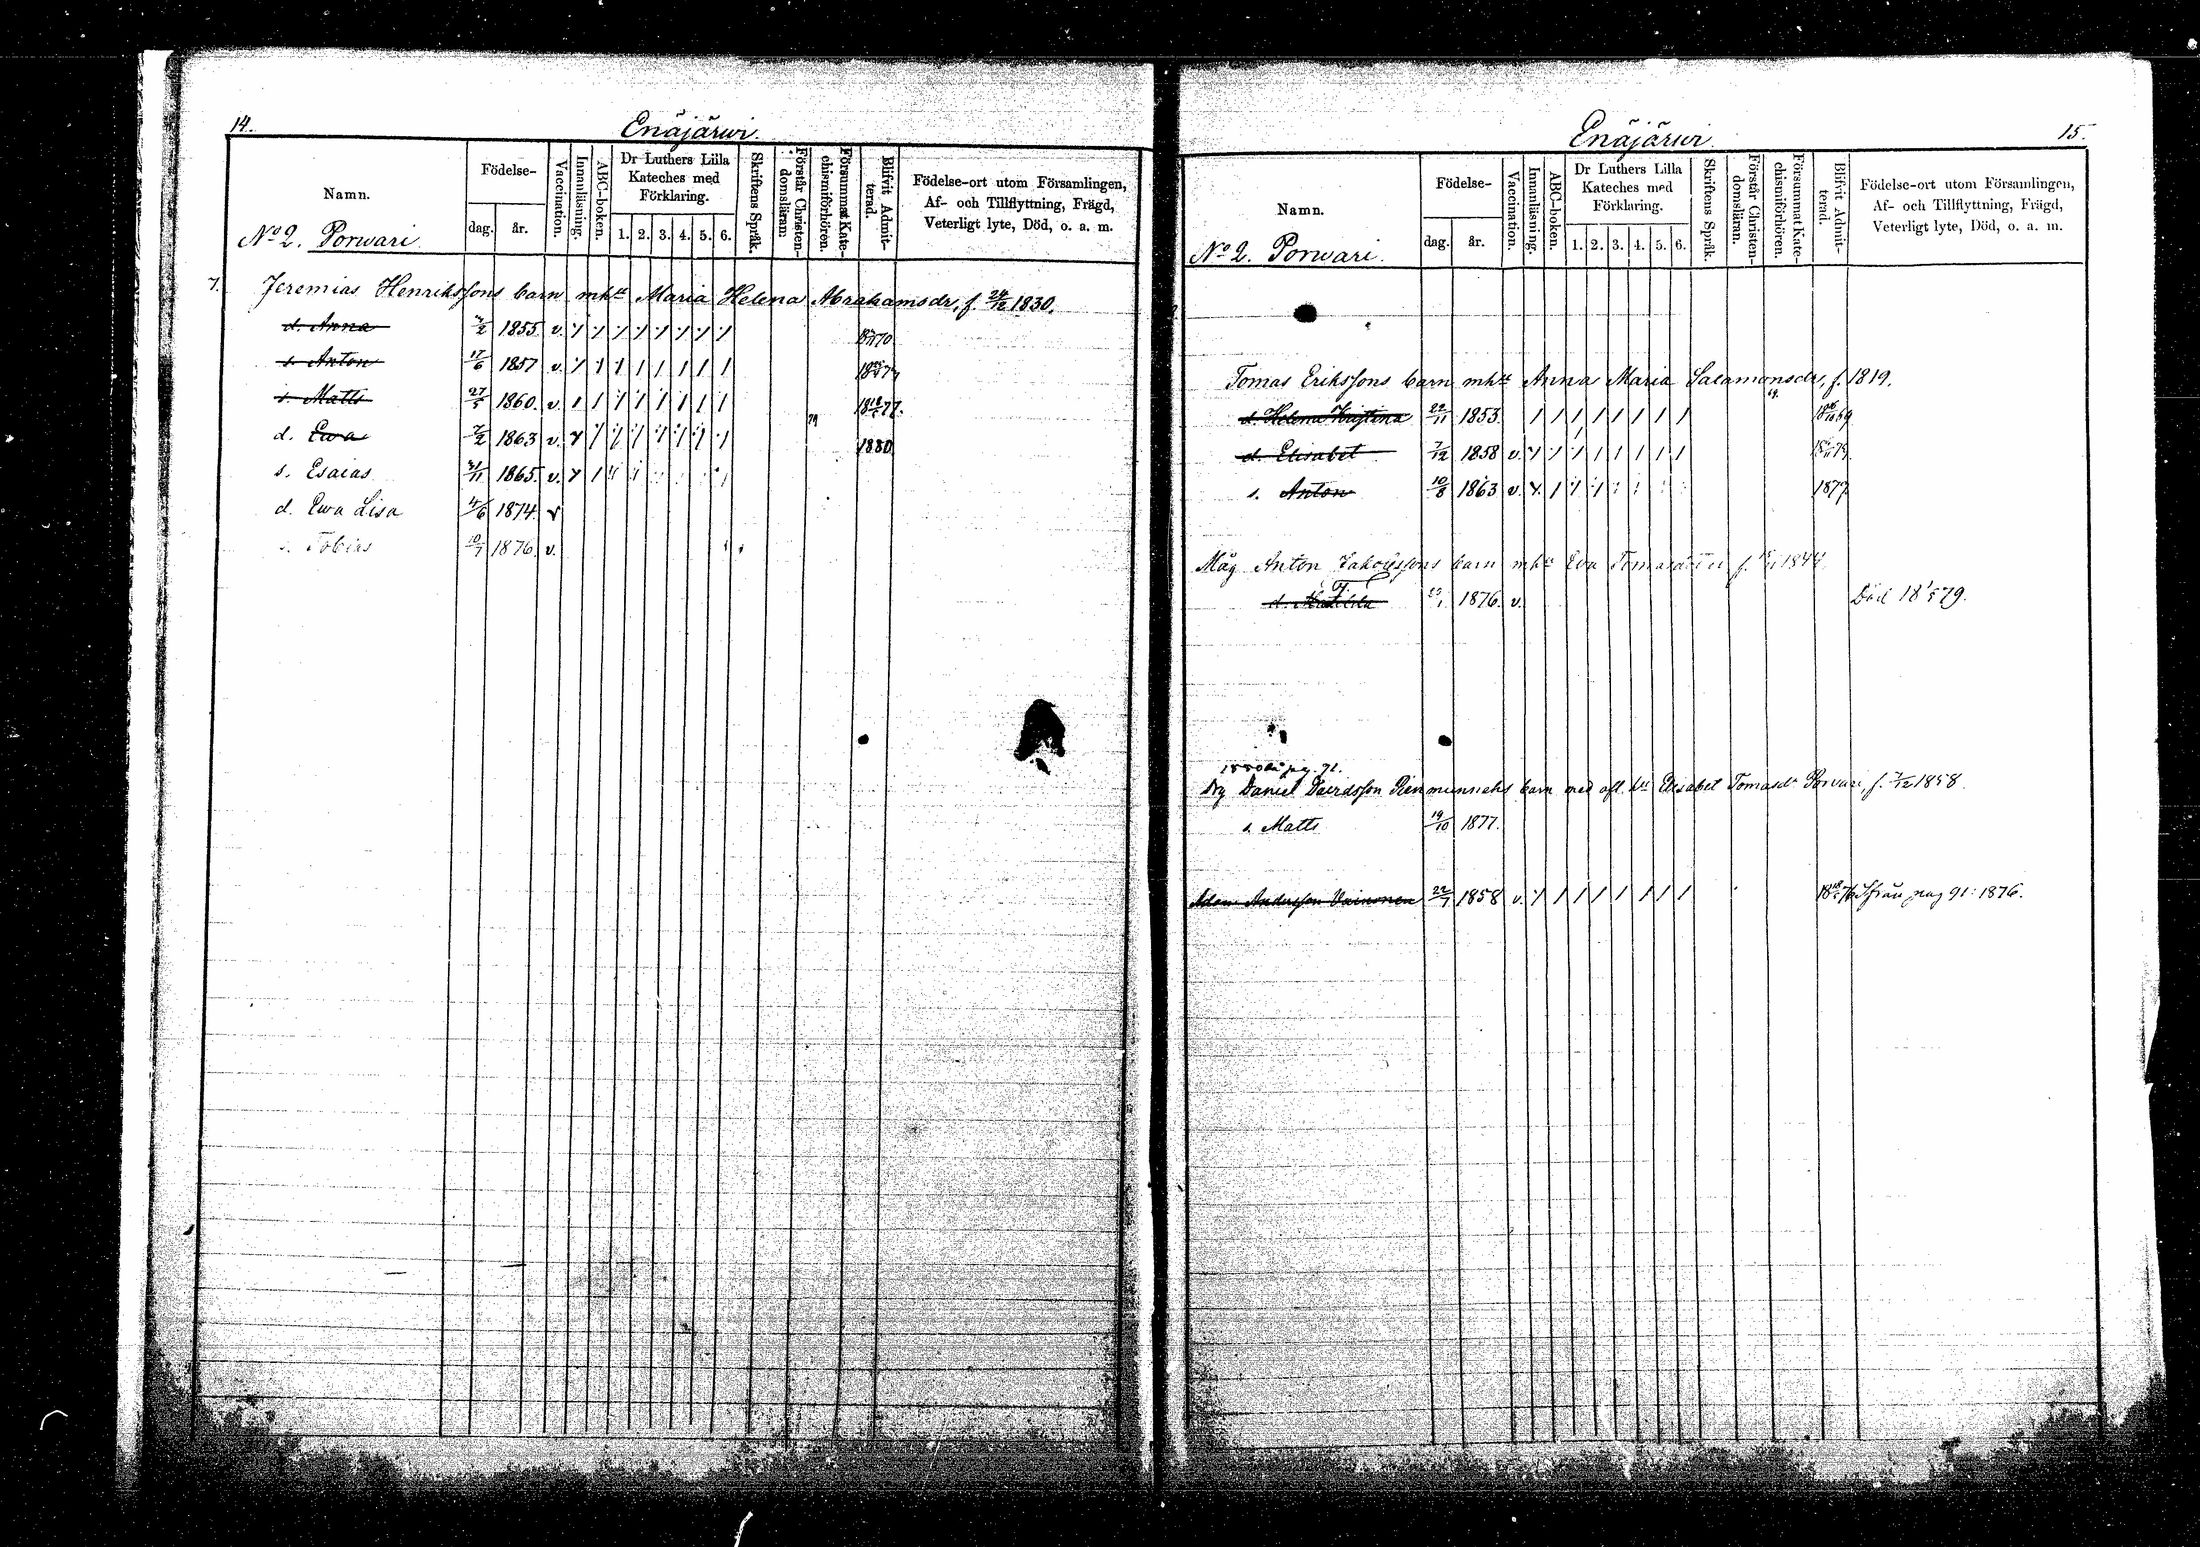 14.
Enäjärwi.
Namn.
Födelse-
dag.
år.
Vaccination.
Innanläsning.
ABC-boken.
Dr Luthers Lilla
Kateches med
Förklaring.
1. 2. 3. 4. 5. 6.
Skriftens Språk.
Förstår Christen-
domsläran.
Försummat Kate-
chismiförhören.
Blifvit Admit-
terad.
Födelse-ort utom Församlingen,
Af- och Tillflyttning, Frägd,
Veterligt lyte, Död, o. a. m.
No 2. Porwari.
7. Jeremias Henrikssons barn mhu Maria Helena Abrahamsdr, f. 24/12 1830.
d. Anna 1855. v.
s. Anton 17/6 1857 v.
s. Matts 27/5 1860. v. 77.
d. Ewa 7/2 1863 v. 79 1880
s. Esaias 1865. v.
d. Ewa Lisa 4/6 1874. v
s. Tobias 10/7 1876. v.
Enäjärwi
15.
Namn.
Födelse-
dag.
år.
Vaccination.
Innanläsning.
ABC-boken.
Dr Luthers Lilla
Kateches med
Förklaring.
1. 2. 3. 4. 5. 6.
Skriftens Språk.
Förstår Christen-
domsläran.
Försummat Kate-
chismiförhören.
Blifvit Admit-
terad.
Födelse-ort utom Församlingen,
Af- och Tillflyttning, Frägd,
Veterligt lyte, Död, o. a. m.
No 2. Porwari.
Tomas Erikssons barn mhu Anna Maria Salamonsdr, f. 1819.
d. Helena Kristina 22/11 1853. 69.
d. Elisabet 7/12 1858 v.
s. Anton 10/8 1863 v. 1877
Måg Anton Jakobssons barn mhu Eva Tomasdotter f. 1844.
d. Matilda 1876. v. Död 18 1/5 79.
pag. 71.
Daniel Davidsson barn med Elisabet Tomasdr Porvari, f. 7/12 1858.
s. Matts 19/10 1877.
Adam Andersson Vainonen 22/7 1858 v. Ifrån pag 91: 1876.